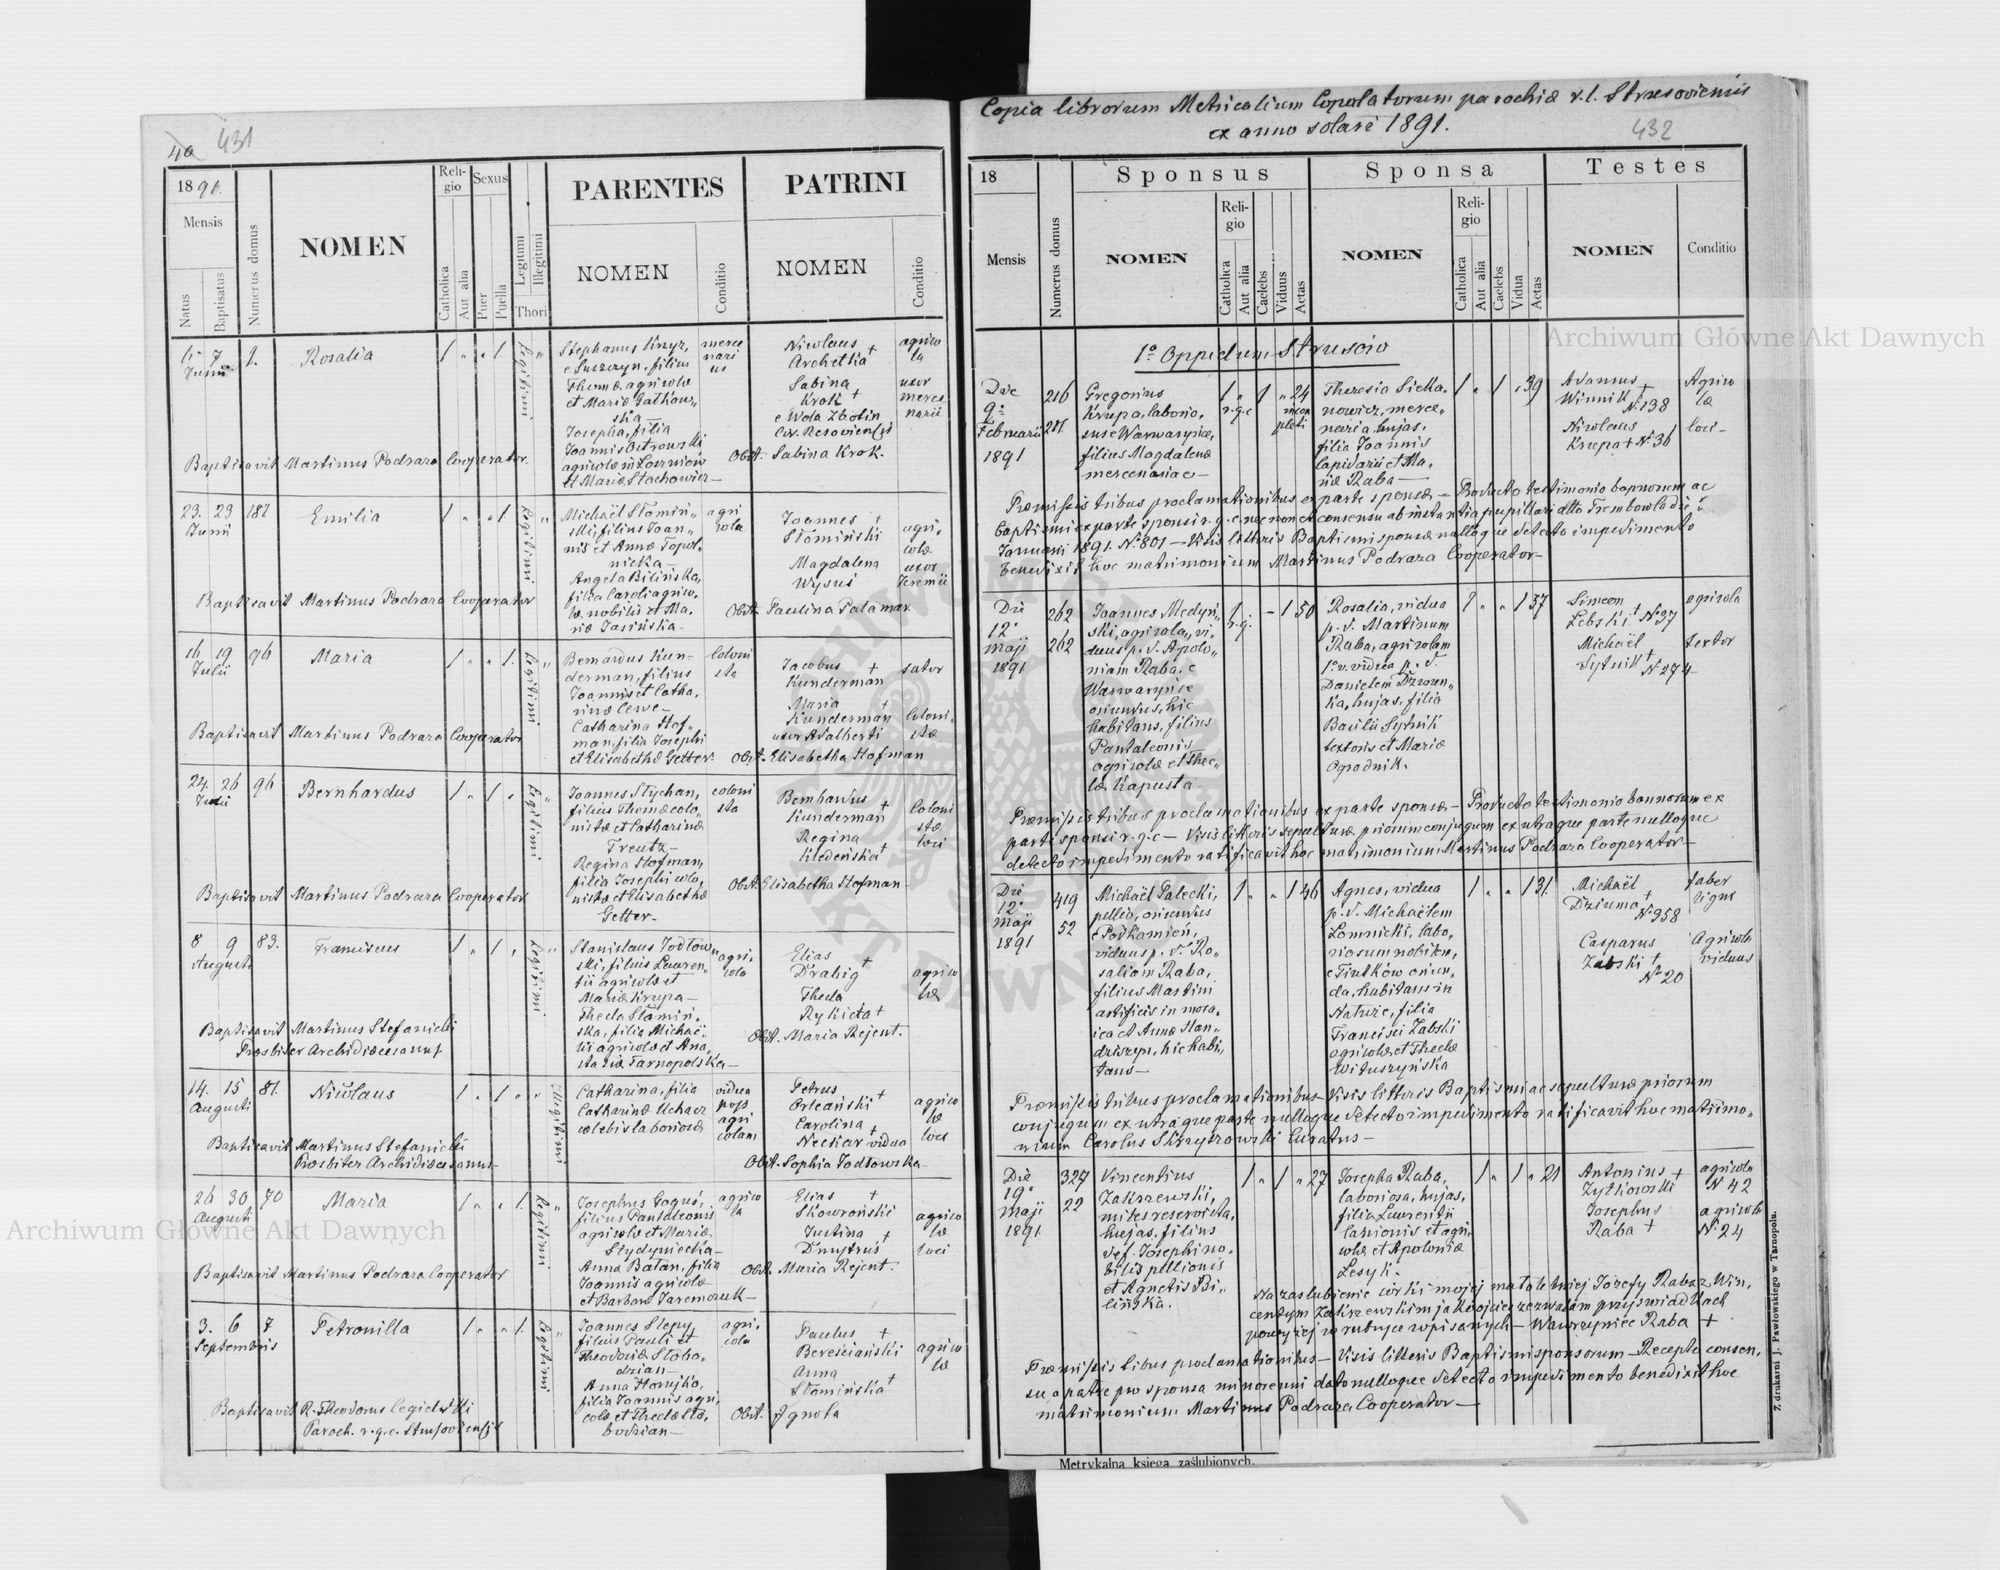 40 431
1891.
Mensis
Natus
Baptisatus
Numerus domus
NOMEN
Reli-
gio
Catholica
Aut alia
Sexus
Puer
Puella
Legitimi
Illegitimi
Thori
PARENTES
NOMEN
Conditio
PATRINI
NOMEN
Conditio
7
Junii
1.
Rosalia
1 " " 1.
Legitimi
Stephanus Knyz,
e Suszczyn, filius
Thomæ agricolæ
et Mariæ Gatkow-
ska —
Josepha, filia
Joannis Ostrowski
agricolæ in
et Mariæ Stachowicz —
merce
nari
us
Nicolaus +
Archetka
Sabina +
Krok
e Wola Zbotin
cir. Resoviensis
agrico
la
uxor
merce
narii
Baptisavit Martinus Podraza Cooperator.
Obst. Sabina Krok.
23. 23
Junii
182
Emilia
1 " " 1
Legitimi
Michaël Stomiń-
ski, filius Joan-
nis et Annæ Topol-
nicka —
Angela Bilińska,
filia Caroli agrico-
læ nobilis et Ma-
riæ Jasińska —
agri
cola
Joannes +
Stomiński
Magdalena
Wysuś
agri-
colæ
uxor
Jeremii
Baptisavit Martinus Podraza Cooperator
Obst. Paulina Palamar
16 19
Julii
96
Maria
1 " " 1.
Legitimi
Bernardus Kun-
derman, filius
Joannis et Catha-
rinæ Cewe —
Catharina Hof-
man, filia Josephi
et Elisabethæ Getter.
Coloni
sta
Jacobus +
Kunderman
Maria +
Kunderman
uxor Adalberti
sutor
Coloni-
stæ
Baptisavit Martinus Podraza Cooperator
Obst. Elisabetha Hofman
24. 26
Julii
96
Bernhardus
1 " 1 "
Legitimi
Joannes Stychan,
filius Thomæ colo-
nistæ et Catharinæ
Treutz —
Regina Hofman,
filia Josephi colo-
nistæ et Elisabethæ
Getter —
coloni
sta
Bernhardus +
Kunderman
Regina
Kiedeńska +
Coloni
stæ
loci
Baptisavit Martinus Podraza Cooperator
Obst. Elisabetha Hofman
8 9
Augusti
83.
Franciscus
1 " 1 "
Legitimi
Stanislaus Jodłow-
ski, filius Lauren-
tii agricolæ et
Mariæ Krupa —
Thecla Stamin-
ska, filia Michaë-
lis agricolæ et Ana-
stasiæ Tarnopolska —
agri-
cola
Elias +
Drahig
Thecla
Rykieta +
agrico
læ
Baptisavit Martinus Stefanicki
Præsbiter Archidiæcesanus.
Obst. Maria Rejent.
14. 15
Augusti
81.
Nicolaus
1 " 1 "
Illegitimi
Catharina, filia
Catharinæ Uchacz
cælebis laboriosæ
vidua
post
agri
colam
Petrus
Orleański +
Carolina +
Neckar vidua
agrico
læ
loci
Baptisavit Martinus Stefanicki
Præsbiter Archidiæcesanus —
Obst. Sophia Jodłowska —
26 30
Augusti
70
Maria
1 " " 1.
Legitimi
Josephus Goguś,
filius Pantaleonis
agricolæ et Mariæ
Stydyniecka —
Anna Batan, filia
Joannis agricolæ
et Barbaræ Jaremczuk —
agrico
la
Elias +
Skowroński
Justina +
Dmytruś
agrico
læ
loci
Baptisavit Martinus Podraza Cooperator
Obst. Maria Rejent.
3. 6
Septembris
7
Petronilla
1 " " 1.
Legitimi
Joannes Slepy,
filius Pauli et
Theodoræ Słobo-
dzian —
Anna Horyjko,
filia Joannis agri-
colæ et Theclæ Sło-
bodzian —
agri-
cola
Paulus +
Bereściański
Anna
Stamińska +
agrico
læ
Baptisavit R. Theodorus Cegielski
Paroch. r.g.c. Strusoviensis
Obst. Ignota
Copia librorum Metricalium Copulatorum parochiæ r.l. Strusoviensis
ex anno solari 1891.
432
18
Mensis
Numerus domus
Sponsus
NOMEN
Reli-
gio
Catholica
Aut alia
Caelebs
Viduus
Aetas
Sponsa
NOMEN
Reli-
gio
Catholica
Aut alia
Caelebs
Vidua
Aetas
Testes
NOMEN
Conditio
1º Oppidum Strusów
Die
9º
Februarii
1891
216
217
Gregorius
Krupa, laborio-
sus e Warwarynce,
filius Magdalenæ
mercenariæ —
1 " 1 " 24
r.g.c
incom
pleti
Theresia Sieka-
nowicz, merce-
naria hujas,
filia Joannis
lapidarii et Ma-
riæ Raba —
1 " 1 " 39
Adamus +
Winnik
Nº 138
Nicolaus
Krupa + Nº 36
Agrico
la
loci —
Præmissis tribus proclamationibus ex parte sponsæ — Producto testimonio bannorum ac
baptismi ex parte sponsi r.g.c. nec non et consensu ab instantia pupillari dto Trembowla die
Januarii 1891. Nº 801 — Visis litteris Baptismi sponsæ nulloque detecto impedimento
benedixit hoc matrimonium Martinus Podraza Cooperator —
Die
12º
Maji
1891
262
262
Joannes Medyń-
ski, agricola, vi-
duus p. d. Apolo-
niam Raba, e
Warwarynce
oriundus, hic
habitans, filius
Pantaleonis
agricolæ et Thec-
læ Kapusta
1 " – 1 50
r.g.
Rosalia, vidua
p. d. Martinum
Raba, agricolam
1º v. vidua p. d.
Danielem Dzwon-
ka, hujas, filia
Basilii Sytnik
textoris et Mariæ
Ogrodnik.
1 " " 1 37
Simeon
Zebski + Nº 97
Michaël +
Sytnik
Nº 274
agricola
textor
Præmissis tribus proclamationibus ex parte sponsæ — Producto testimonio bannorum ex
parte sponsi r.g.c — Visis litteris sepulturæ priorum conjugum ex utraque parte nulloque
detecto impedimento ratificavit hoc matrimonium Martinus Podraza Cooperator —
Die
12º
Maji
1891
419
52
Michaël Palecki,
pellio, oriundus
e Podkamień,
viduus p. d. Ro-
saliam Raba,
filius Martini
artificis in mosa-
ica et Annæ Han-
dziszyn, hic habi-
tans —
1 " " 1 46
Agnes, vidua
p. d. Michaëlem
Łomnicki, labo-
riosum nobilem,
e Tiutków oriun-
da, habitans in
Nałuże, filia
Francisci Zabski
agricolæ et Theclæ
Wituszyńska
1 " " 1 31.
Michaël
Dziuma +
Nº 358
Casparus
Zabski +
Nº 20
faber
lignus
Agricola
viduus
Præmissis tribus proclamationibus — Visis litteris Baptismi ac sepulturæ priorum
conjugum ex utraque parte nulloque detecto impedimento ratificavit hoc matrimo-
nium Carolus Skrzyszowski Curatus —
Die
19º
Maji
1891
327
22
Vincentius
Zakrzewski,
miles reservista,
hujas, filius
def. Josephi no-
bilis pellionis
et Agnetis Bi-
lińska.
1 " 1 " 27
Josepha Raba,
laboriosa, hujas,
filia Laurentii
lanionis et agri-
colæ et Apoloniæ
Lesyk.
1 " 1 " 21
Antonius +
Zytkowski
Josephus
Raba +
agricola
Nº 42
agricola
Nº 24
Na zaślubienie córki mojej małoletniej Józefy Raba z Win-
centym Zakrzewskim jako ojciec zezwalam przy świadkach
powyżej w rubryce wpisanych — Wawrzyniec Raba +
Præmissis tribus proclamationibus — Visis litteris Baptismi sponsorum — Recepto consen-
su a patre pro sponsa minorenni dato nulloque detecto impedimento benedixit hoc
matrimonium Martinus Podraza Cooperator —
Metrykalna księga zaślubionych.
Z drukarni J. Pawłowskiego w Tarnopolu.
Archiwum Główne Akt Dawnych
Archiwum Główne Akt Dawnych